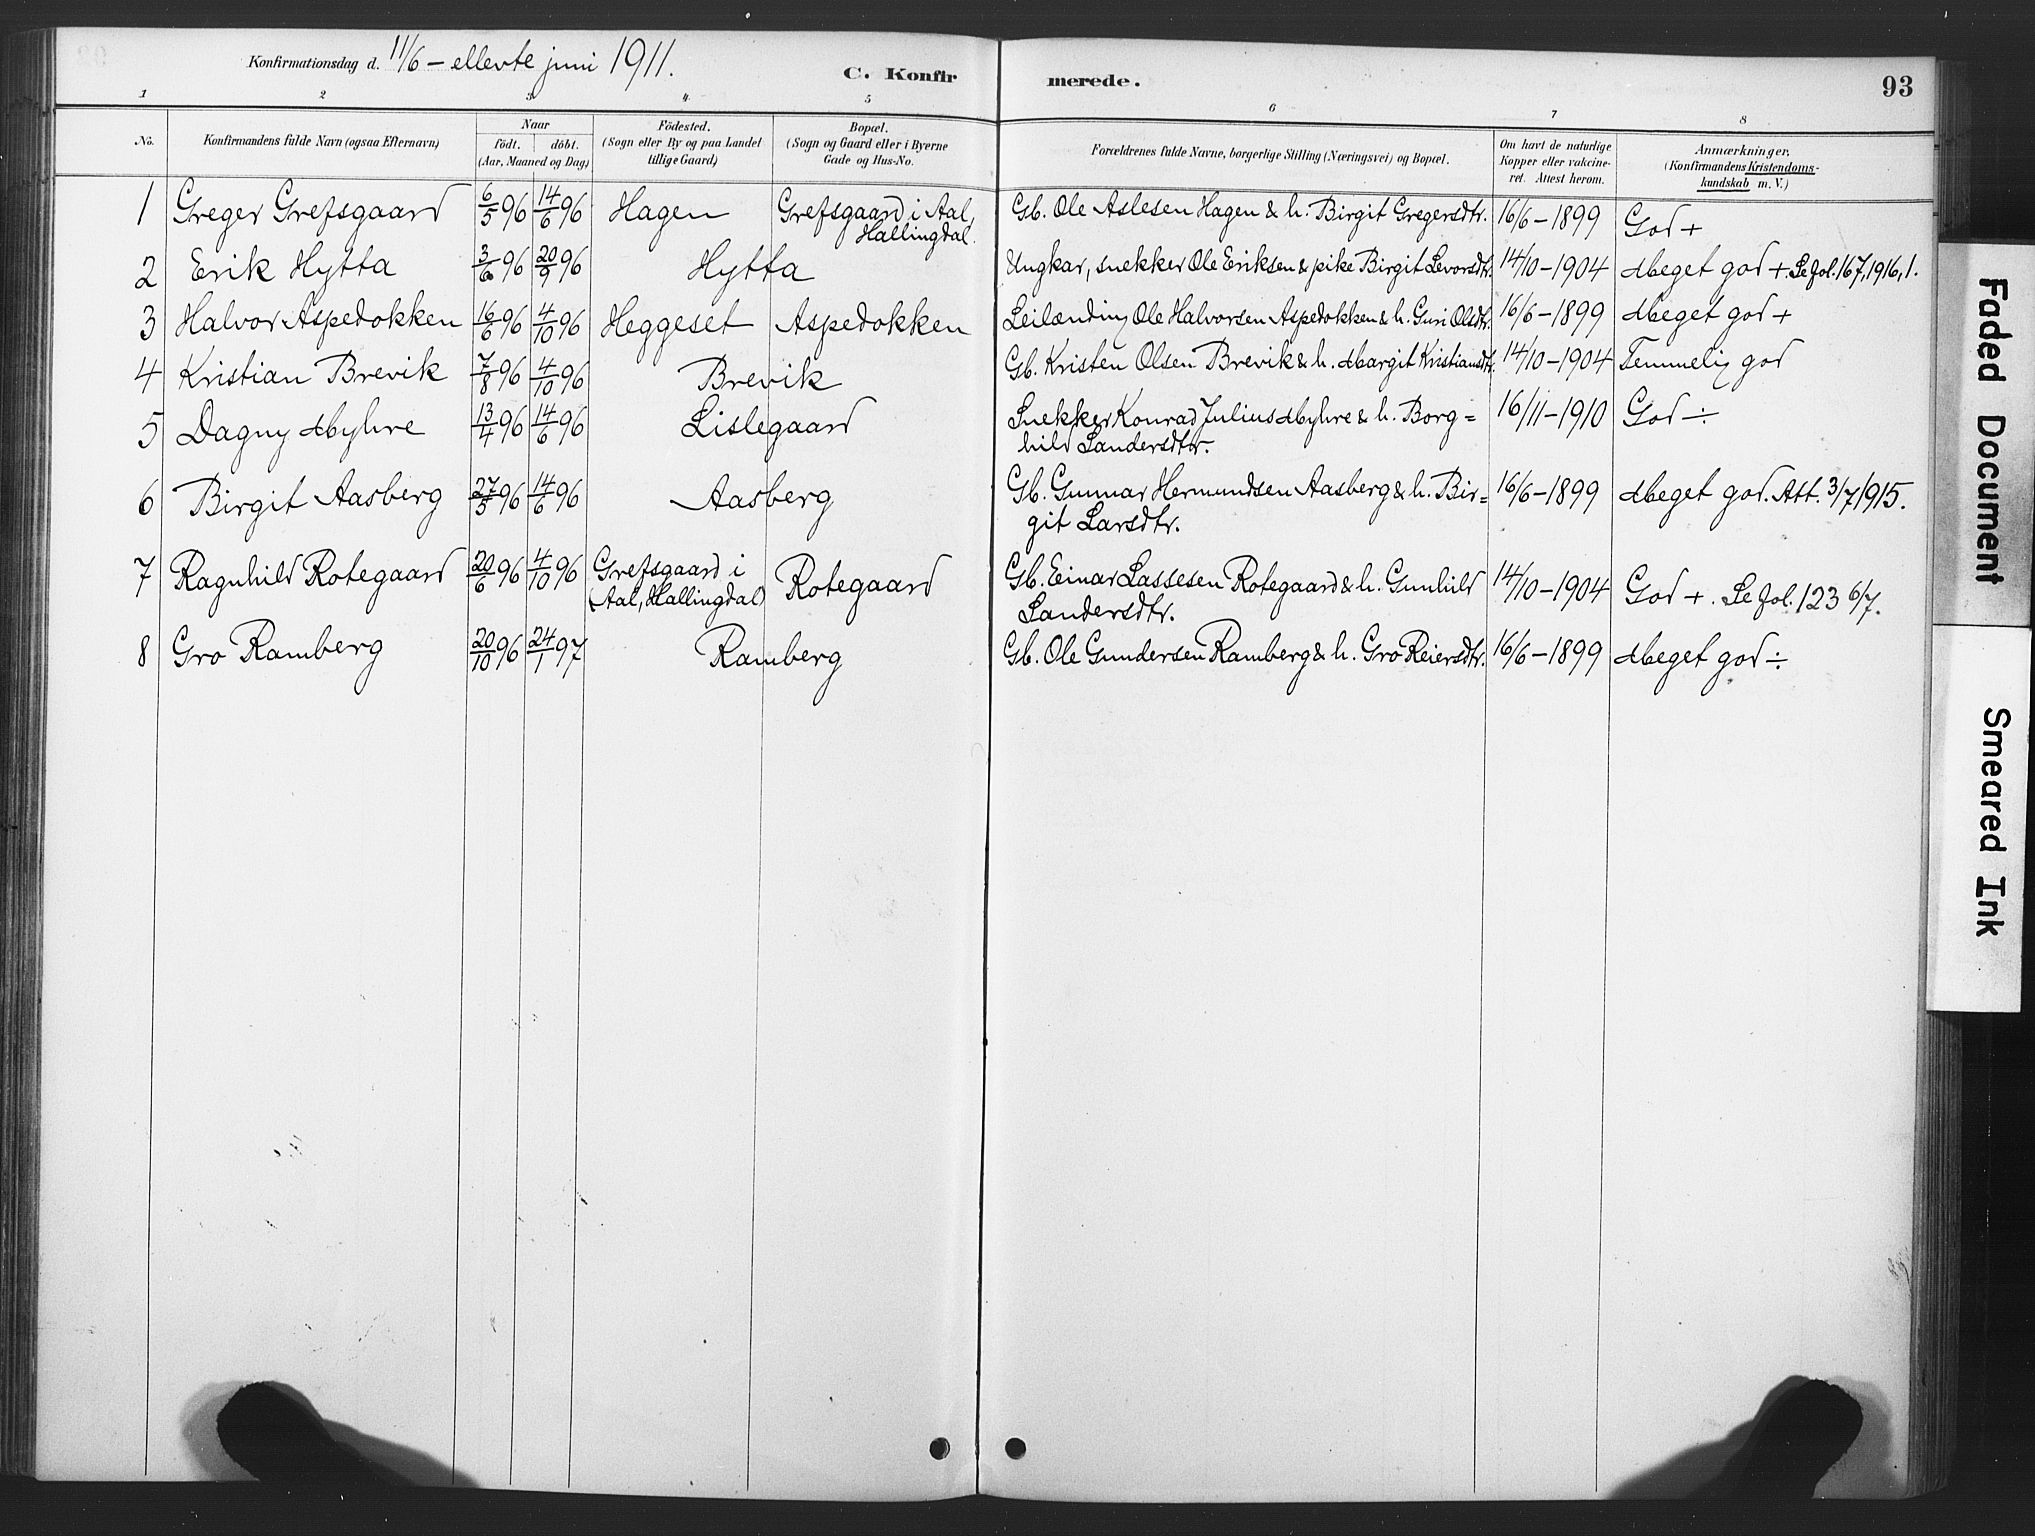 Konfirmationsdag d. 11/6 – ellevte juni 1911.
C. Konfirmerede.
93
1 2 3 4 5 6 7 8
No.
Konfirmandens fulde Navn (ogsaa Efternavn)
Naar
födt. döbt.
(Aar, Maaned og Dag)
Födested.
(Sogn eller By og paa Landet
tillige Gaard)
Bopæl.
(Sogn og Gaard eller i Byerne
Gade og Hus-No.
Forældrenes fulde Navne, borgerlige Stilling (Næringsvei) og Bopæl.
Om havt de naturlige
Kopper eller vakcine-
ret. Attest herom.
Anmærkninger.
(Konfirmandens Kristendoms-
kundskab m. V.)
1 Greger Grefsgaard 6/5 96 14/6 96 Hagen Grefsgaard i Aal, Hallingdal. Gb. Ole Aslesen Hagen & h. Birgit Gregersdtr. 16/6 – 1899 God +
2 Erik Hytta 3/6 96 20/9 96 Hytta Ungkar, snekker Ole Eriksen & pike Birgit Levorsdtr. 14/10 – 1904 Meget god +. Se fol. 167, 1916, 1.
3 Halvor Aspedokken 16/6 96 4/10 96 Heggeset Aspedokken Leilænding Ole Halvorsen Aspedokken & h. Guri Olsdtr. 16/6 – 1899 Meget god +
4 Kristian Brevik 7/8 96 4/10 96 Brevik Gb. Kristen Olsen Brevik & h. Margit Kristiansdtr. 14/10 – 1904 Temmelig god
5 Dagny Myhre 13/4 96 14/6 96 Lislegaard Snekker Konrad Julius Myhre & h. Borg= 16/11 – 1910 God ÷
hild Sandersdtr.
6 Birgit Aasberg 27/5 96 14/6 96 Aasberg Gb. Gunnar Hermundsen Aasberg & h. Bir= 16/6 – 1899 Meget god. Att. 3/7 1915.
git Larsdtr.
7 Ragnhild Rotegaard 20/6 96 4/10 96 Grefsgaard i Aal, Hallingdal) Rotegaard Gb. Einar Lassesen Rotegaard & h. Gunhild 14/10 – 1904 God +. Se fol. 123 6/7.
Sandersdtr.
8 Gro Ramberg 20/10 96 24/1 97 Ramberg Gb. Ole Gundersen Ramberg & h. Gro Reiersdtr. 16/6 – 1899 Meget god ÷
Faded Document
Smeared Ink